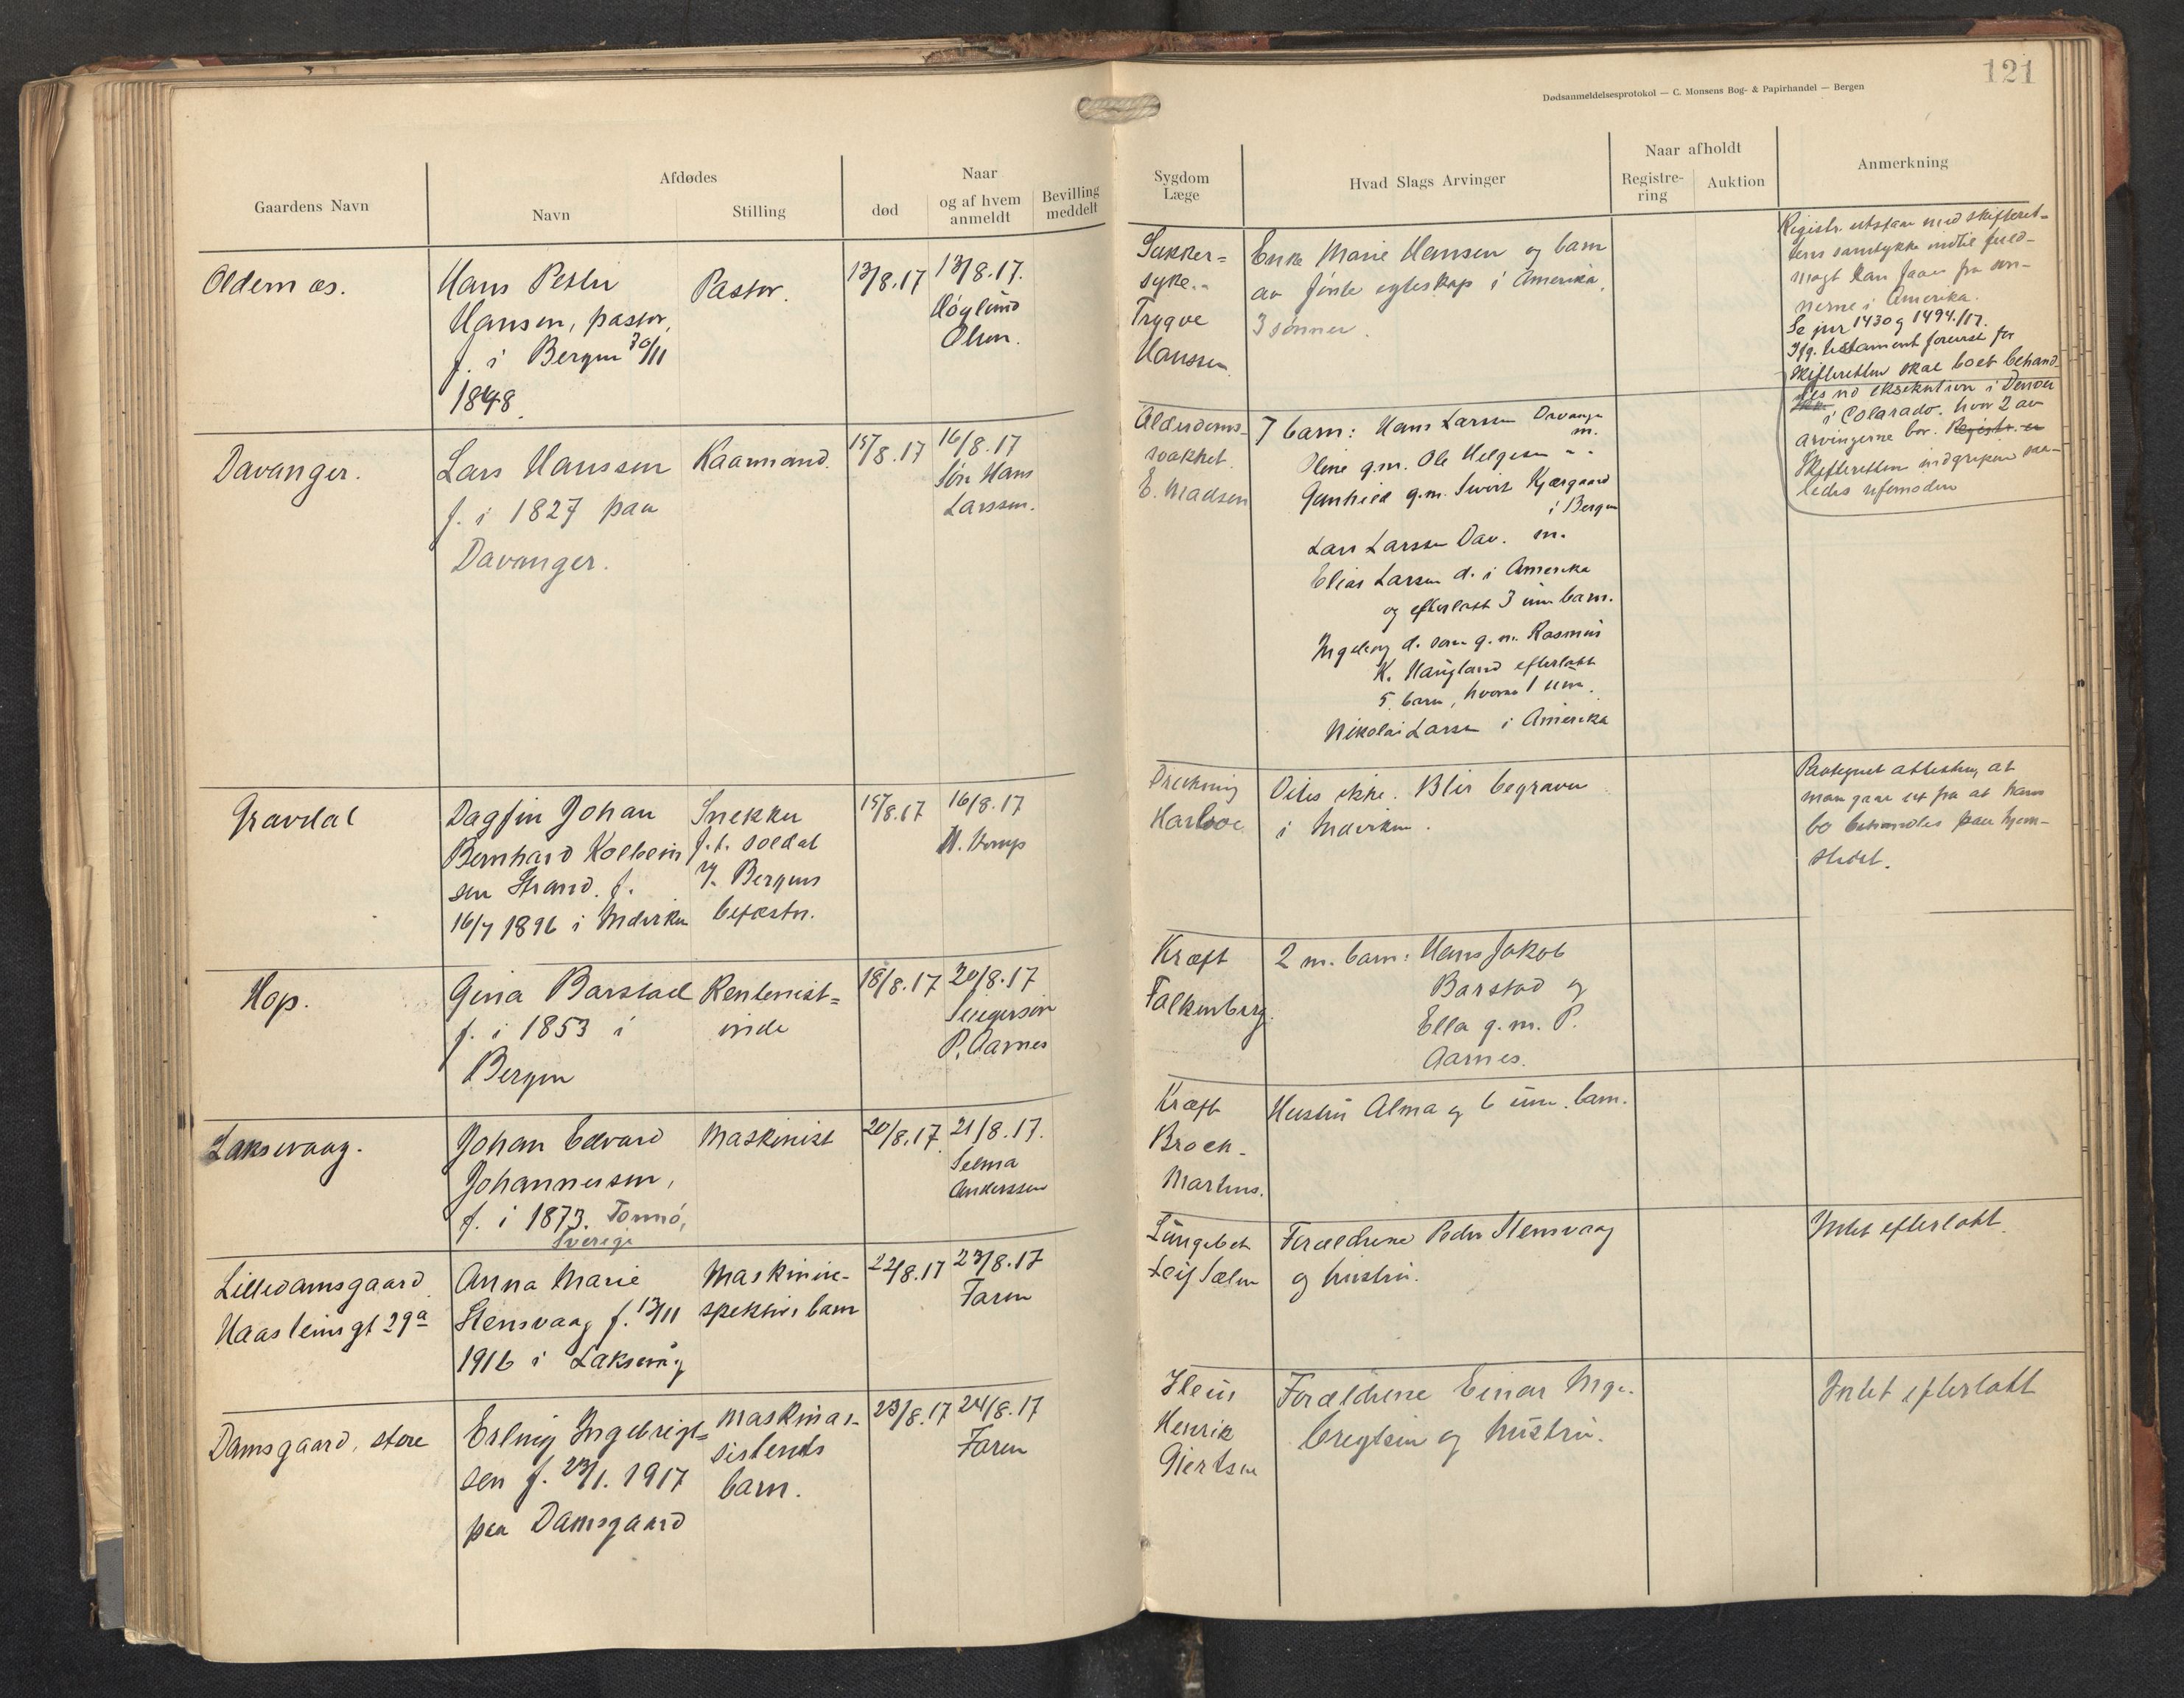 121
Dødsanmeldelsesprotokol — C. Monsens Bog- & Papirhandel — Bergen
Gaardens Navn
Afdødes
Navn
Stilling
Naar
død
og af hvem
anmeldt
Bevilling
meddelt
Sygdom
Læge
Hvad Slags Arvinger
Naar afholdt
Registre-
ring
Auktion
Anmerkning
Oldernæs.
Hans Petter
Hansen, pastor,
f. i Bergen 30/11
1848.
Pastor.
13/8.17
13/8.17.
Høylund
Olsen.
Sukker-
syke.
Trygve
Hanssen
Enke Marie Hansen og barn
av første egteskap i Amerika.
3 sønner.
Registr. utstaar med skifteret-
tens samtykke indtil fuld-
magt kan faaes fra søn-
nerne i Amerika.
Se jur 1430 og 1494/17.
Ifg. testament forevist for
Skifteretten skal boet behand-
les ved eksekution i Denver
i Colarado. hvor 2 av
arvingerne bor. Registr. er
Skifteretten indgripen saa-
ledes ufornøden
Davanger.
Lars Hanssen
f. i 1827 paa
Davanger.
Kaarmand.
15/8.17
16/8.17
Søn Hans
Larssen.
Alderdoms-
svakhet.
E. Madsen
7 barn: Hans Larssen Davanger
m.
Oline g.m. Ole Helgesen " "
Gunhild g.m. Sivert Kjærgaard
i Bergen
Lars Larssen Dav. m.
Elias Larsen d. i Amerika
og efterlatt 3 um. barn.
Ingeborg d. som g.m. Rasmus
K. Haugland efterlatt
5 barn, hvorav 1 um.
Nikolai Larsen i Amerika
Gravdal
Dagfin Johan
Bernhard Kolbein
sen Strand. f.
16/7 1896 i Indviken
Snekker
f.t. soldat
v/ Bergens
befæstn.
15/8.17
16/8.17
Drukning
Vites ikke. Blir begravet
i Indviken.
Paategnet attesten, at
man gaar ut fra at hans
bo behandles paa hjem-
stedet.
Hop.
Gina Barstad
f. i 1853 i
Bergen
Rentenist-
inde
18/8.17
20/8.17
Svigersøn
P. Aarnes
Kræft
Falkenberg.
2 m. barn: Hans Jakob
Barstad og
Ella g.m. P.
Aarnes.
Laksevaag.
Johan Edvard
Johannessen,
f. i 1873. Tormö,
Sverige
Maskinist
20/8.17.
21/8.17.
Selma
Anderssen
Kræft
Broch-
Martens.
Hustru Alma og 6 um. barn.
Lilledamsgaard
Haasteinsgt 29a
Anna Marie
Stensvaag f. 13/11
1916 i Laksevåg
Maskinin-
spektørs barn
22/8.17
23/8.17
Faren
Lungebet.
Leif Sælen
Forældrene Peder Stensvaag
og hustru.
Intet efterlatt.
Damsgaard, store
Erling Ingebrigt-
sen f. 23/1. 1917
paa Damsgaard
Maskinas-
sistents
barn.
23/8.17
24/8.17
Faren
Henrik
Giertsen
Forældrene Einar Inge-
brigtsen og hustru.
Intet efterlatt